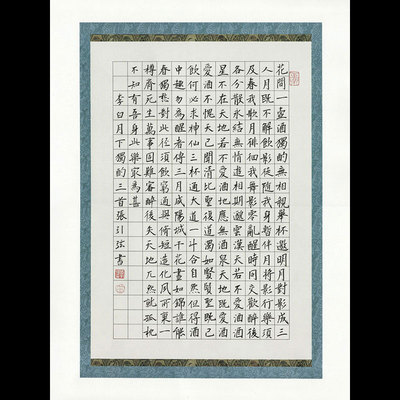 花間一壺酒獨酌無相親舉杯邀明月對影成三
人月既不解飲影徒隨我身暫伴月將影行樂須
及春我歌月徘徊我舞影零亂醒時同交歡醉後
各分散永結無情遊相期邈雲漢天若不愛酒酒
星不在天地若不愛酒地應無酒泉天地既愛酒
愛酒不愧天已聞清比聖復道濁如賢賢聖既已
飲何必求神仙三杯通大道一斗合自然但得酒
中趣勿為醒者傳三月咸陽城千花晝如錦誰能
春獨愁對此徑須飲窮通與修短造化夙所稟一
樽齊死生萬事固難審醉後失天地兀然就孤枕
不知有吾身此樂最為甚
李白月下獨酌三首張引弦書